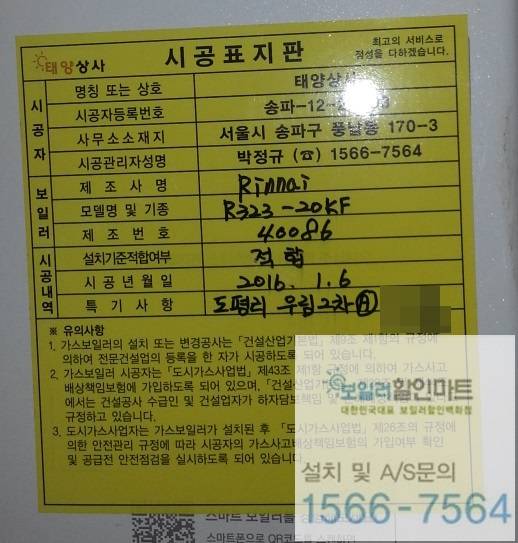 태양상사
시공표지판
최고의 서비스로
정성을 다하겠습니다.
시공자
명칭 또는 상호 태양상사
시공자등록번호 송파-12-
사무소소재지 서울시 송파구 풍납동 170-3
시공관리자성명 박정규 (☎) 1566-7564
보일러
제 조 사 명 Rinnai
모델명 및 기종 R323-20KF
제 조 번 호 40086
시공내역
설치기준적합여부 적합
시 공 년 월 일 2016. 1. 6
특 기 사 항 도평리 우림2차 Ⓐ
※ 유의사항
1. 가스보일러의 설치 또는 변경공사는 「건설산업기본법」 제9조 제1항의 규정에
의하여 전문건설업의 등록을 한 자가 시공하도록 되어 있습니다.
2. 가스보일러 시공자는 「도시가스사업법」 제43조 제1항 규정에 의하여 가스사고
배상책임보험에 가입하도록 되어 있으며, 「건설산업기
에서는 건설공사 수급인 및 건설업자가 하자담보책임 및
규정하고 있습니다.
3. 도시가스사업자는 가스보일러가 설치된 후 「도시가스사업법」 제26조의 규정에
의한 안전관리 규정에 따라 시공자의 가스사고배상책임보험의 가입여부 확인
및 공급전 안전점검을 실시하도록 되어 있습니다.
보일러할인마트
대한민국대표 보일러할인백화점
설치 및 A/S문의
1566-7564
스마트 보일러를
스마트폰으로 QR코드를 스캔하면